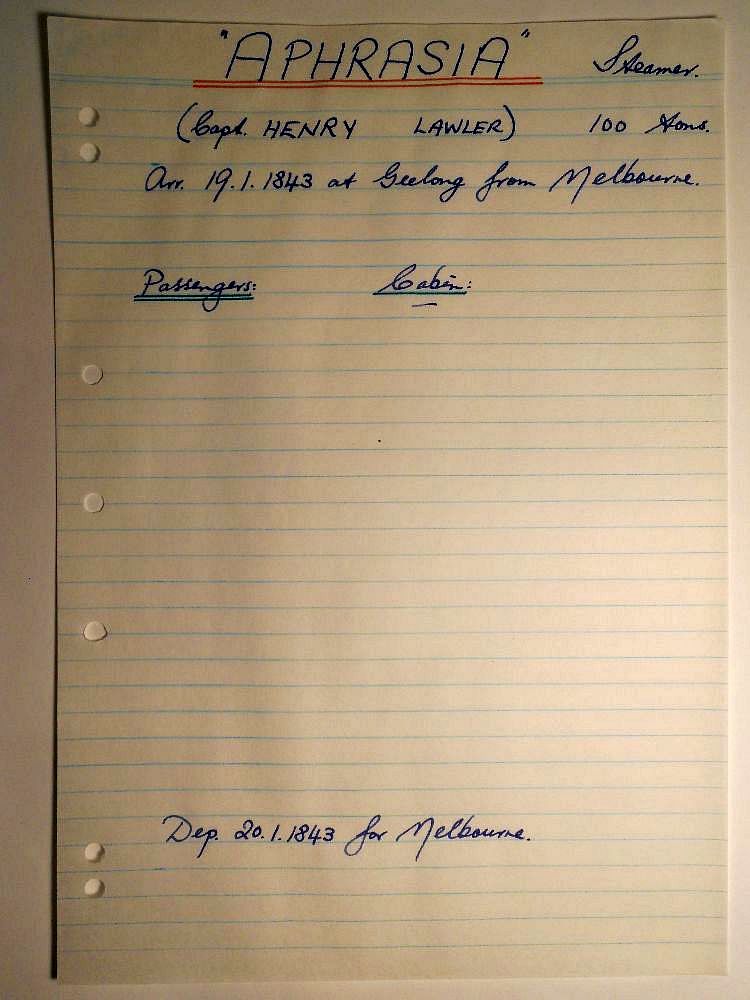 "APHRASIA" Steamer.
(Capt. HENRY LAWLER) 100 tons.
Arr. 19.1.1843 at Geelong from Melbourne.
Passengers: Cabin:
Dep. 20.1.1843 for Melbourne.